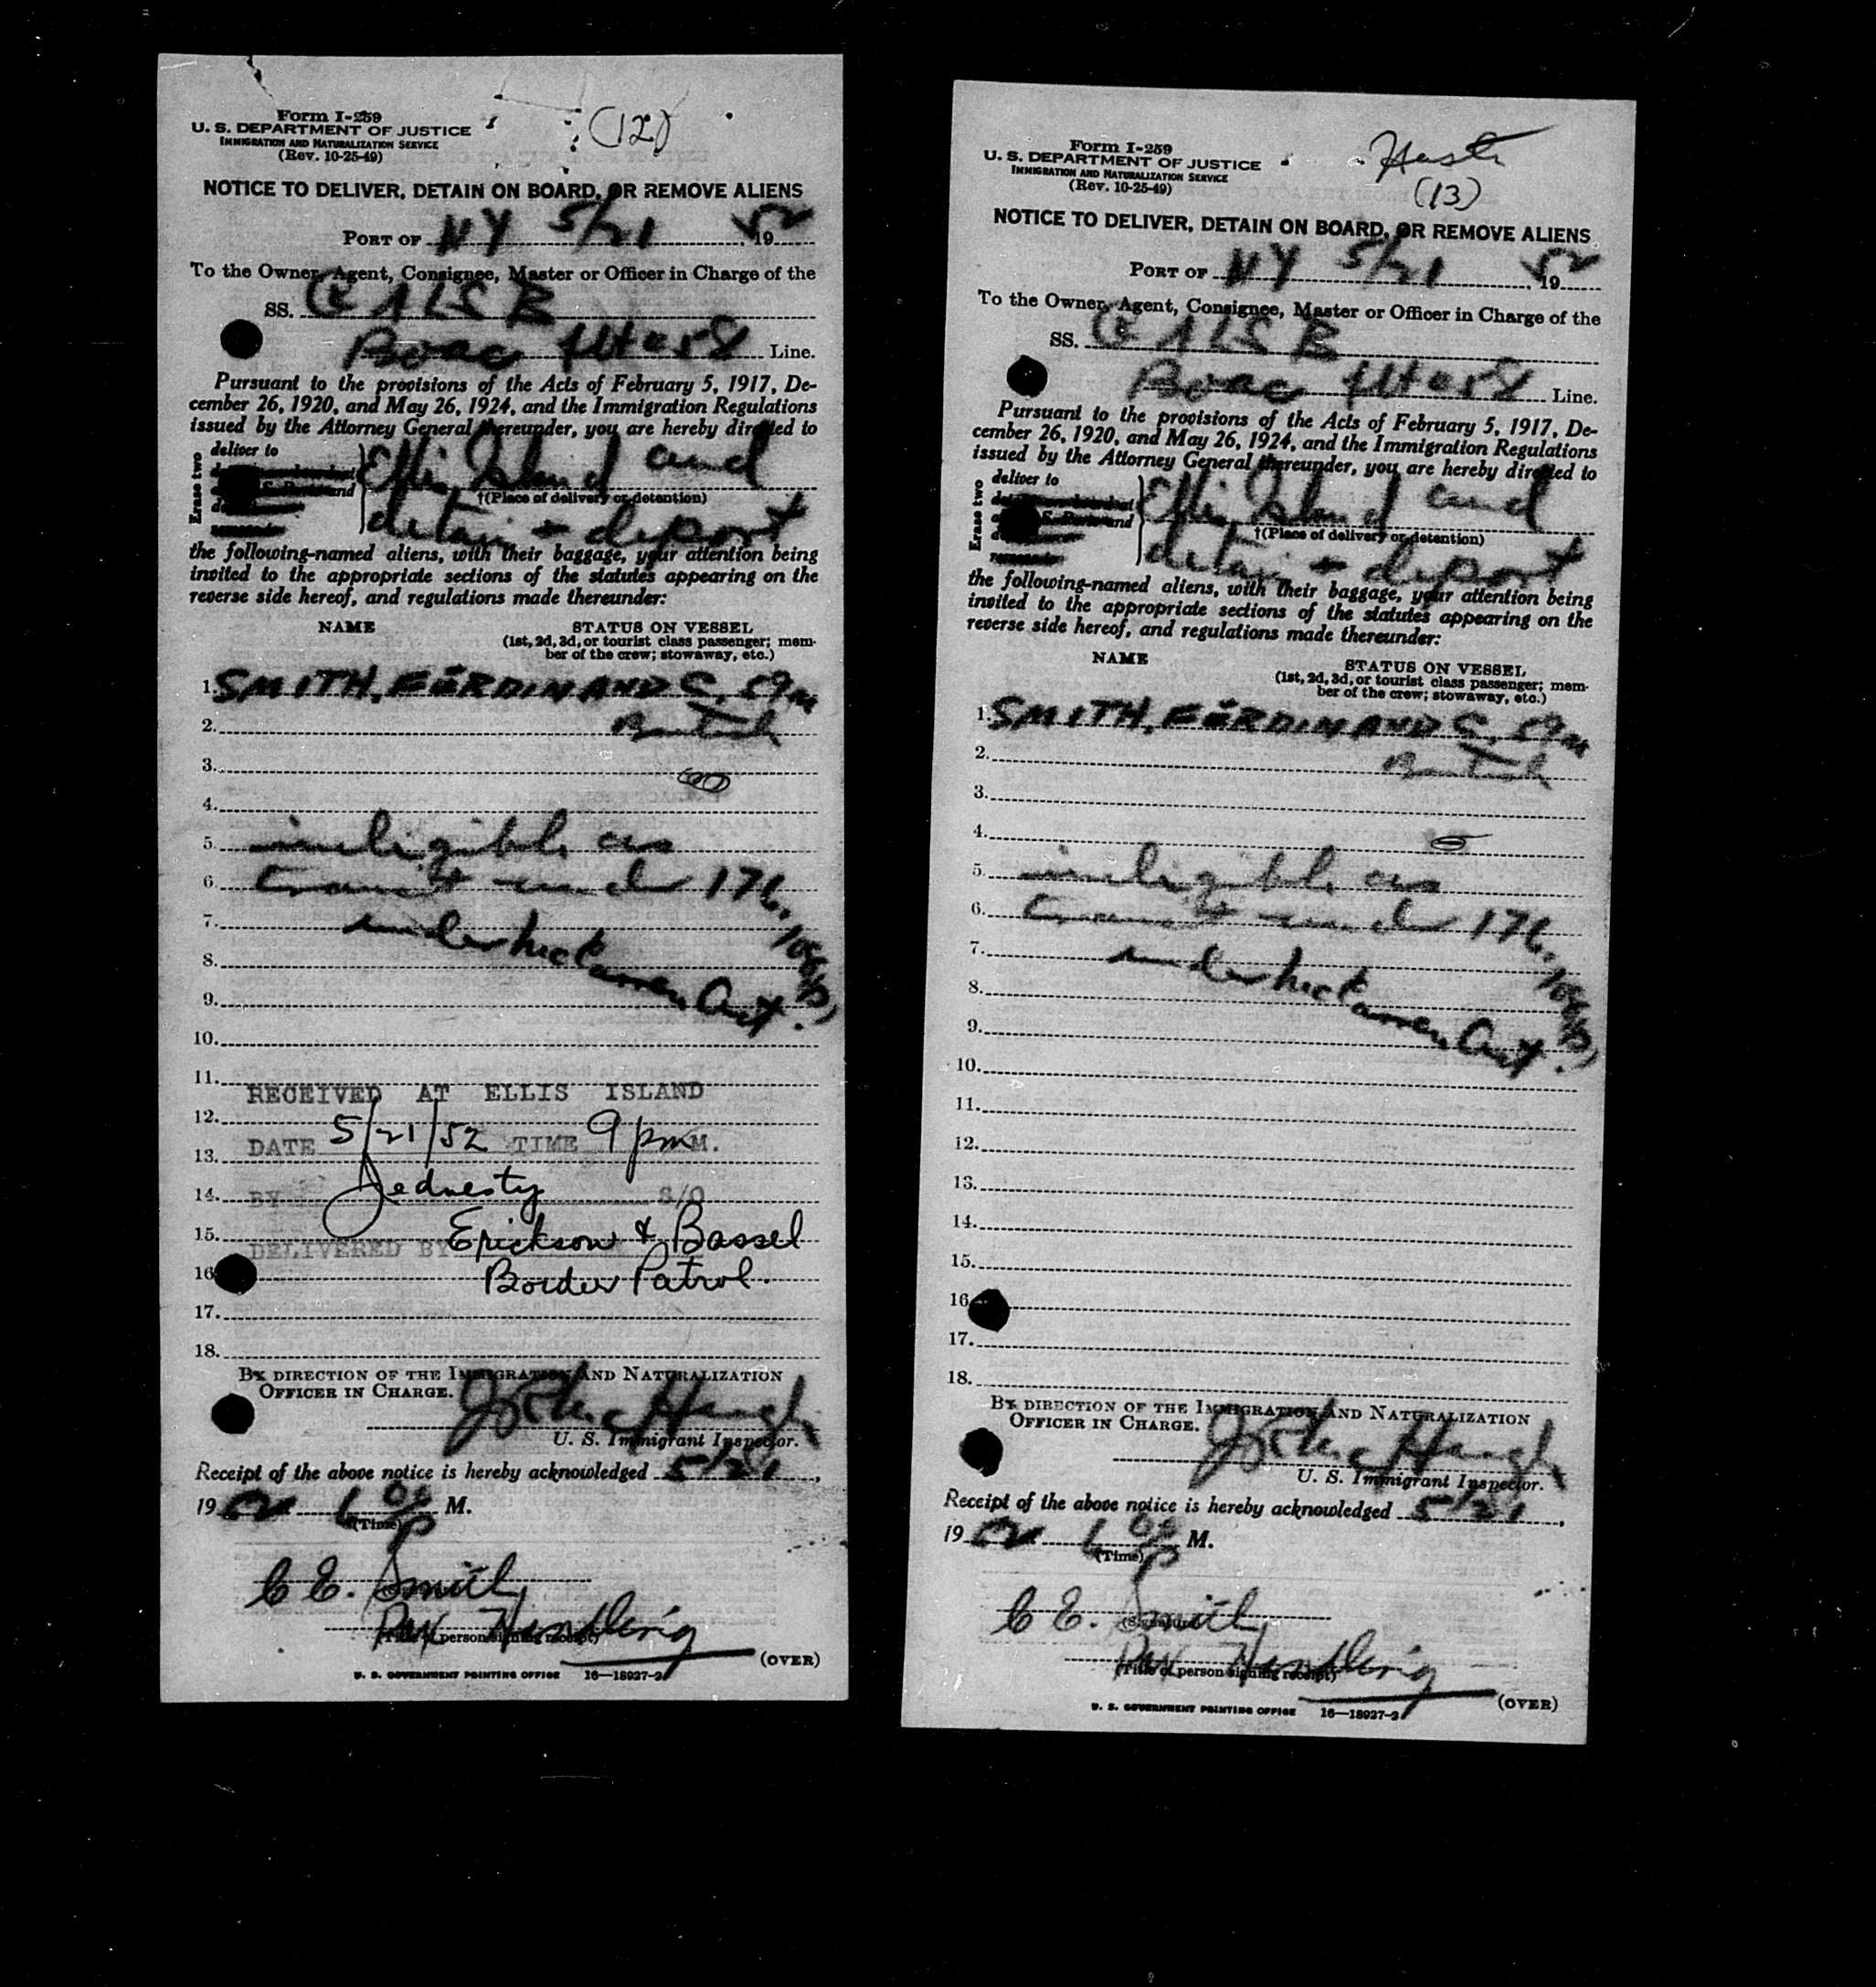 (12)
Form I-259
U. S. DEPARTMENT OF JUSTICE
IMMIGRATION AND NATURALIZATION SERVICE
(Rev. 10-25-49)
NOTICE TO DELIVER, DETAIN ON BOARD, OR REMOVE ALIENS
PORT OF NY 5/21, 1952
To the Owner, Agent, Consignee, Master or Officer in Charge of the
SS. G ALSB
BOAC Line.
Pursuant to the provisions of the Acts of February 5, 1917, De-
cember 26, 1920, and May 26, 1924, and the Immigration Regulations
issued by the Attorney General thereunder, you are hereby directed to
Erase two
deliver to
Ellis Island and
†(Place of delivery or detention)
detain + deport
the following-named aliens, with their baggage, your attention being
invited to the appropriate sections of the statutes appearing on the
reverse side hereof, and regulations made thereunder:
NAME STATUS ON VESSEL
(1st, 2d, 3d, or tourist class passenger; mem-
ber of the crew; stowaway, etc.)
1. SMITH, FERDINAND C. 59m
2. British
3.
4.
5. ineligible as
6. transit under 176.
7. under
8.
9. Act.
10.
11.
RECEIVED AT ELLIS ISLAND
12.
DATE 5/21/52 TIME 9 pm M.
13.
14. BY S/O
15. DELIVERED BY Erickson & Bassel
16. Border Patrol.
17.
18.
BY DIRECTION OF THE IMMIGRATION AND NATURALIZATION
OFFICER IN CHARGE.
U. S. Immigrant Inspector.
Receipt of the above notice is hereby acknowledged 5/21,
1952 6 00 P M.
(Time)
C E. Smith
Pax Handling
(Title of person signing receipt)
(OVER)
U. S. GOVERNMENT PRINTING OFFICE 16—18927-2
(13)
Form I-259
U. S. DEPARTMENT OF JUSTICE
IMMIGRATION AND NATURALIZATION SERVICE
(Rev. 10-25-49)
NOTICE TO DELIVER, DETAIN ON BOARD, OR REMOVE ALIENS
PORT OF NY 5/21, 1952
To the Owner, Agent, Consignee, Master or Officer in Charge of the
SS. G ALSB
BOAC Line.
Pursuant to the provisions of the Acts of February 5, 1917, De-
cember 26, 1920, and May 26, 1924, and the Immigration Regulations
issued by the Attorney General thereunder, you are hereby directed to
Erase two
deliver to
Ellis Island and
†(Place of delivery or detention)
detain + deport
the following-named aliens, with their baggage, your attention being
invited to the appropriate sections of the statutes appearing on the
reverse side hereof, and regulations made thereunder:
NAME STATUS ON VESSEL
(1st, 2d, 3d, or tourist class passenger; mem-
ber of the crew; stowaway, etc.)
1. SMITH, FERDINAND C. 59m
2. British
3.
4.
5. ineligible as
6. transit under 176.
7. under
8.
9. Act.
10.
11.
12.
13.
14.
15.
16.
17.
18.
BY DIRECTION OF THE IMMIGRATION AND NATURALIZATION
OFFICER IN CHARGE.
U. S. Immigrant Inspector.
Receipt of the above notice is hereby acknowledged 5/21,
1952 6 00 P M.
(Time)
C E. Smith
(Signature)
Pax Handling
(Title of person signing receipt)
(OVER)
U. S. GOVERNMENT PRINTING OFFICE 16—18927-2